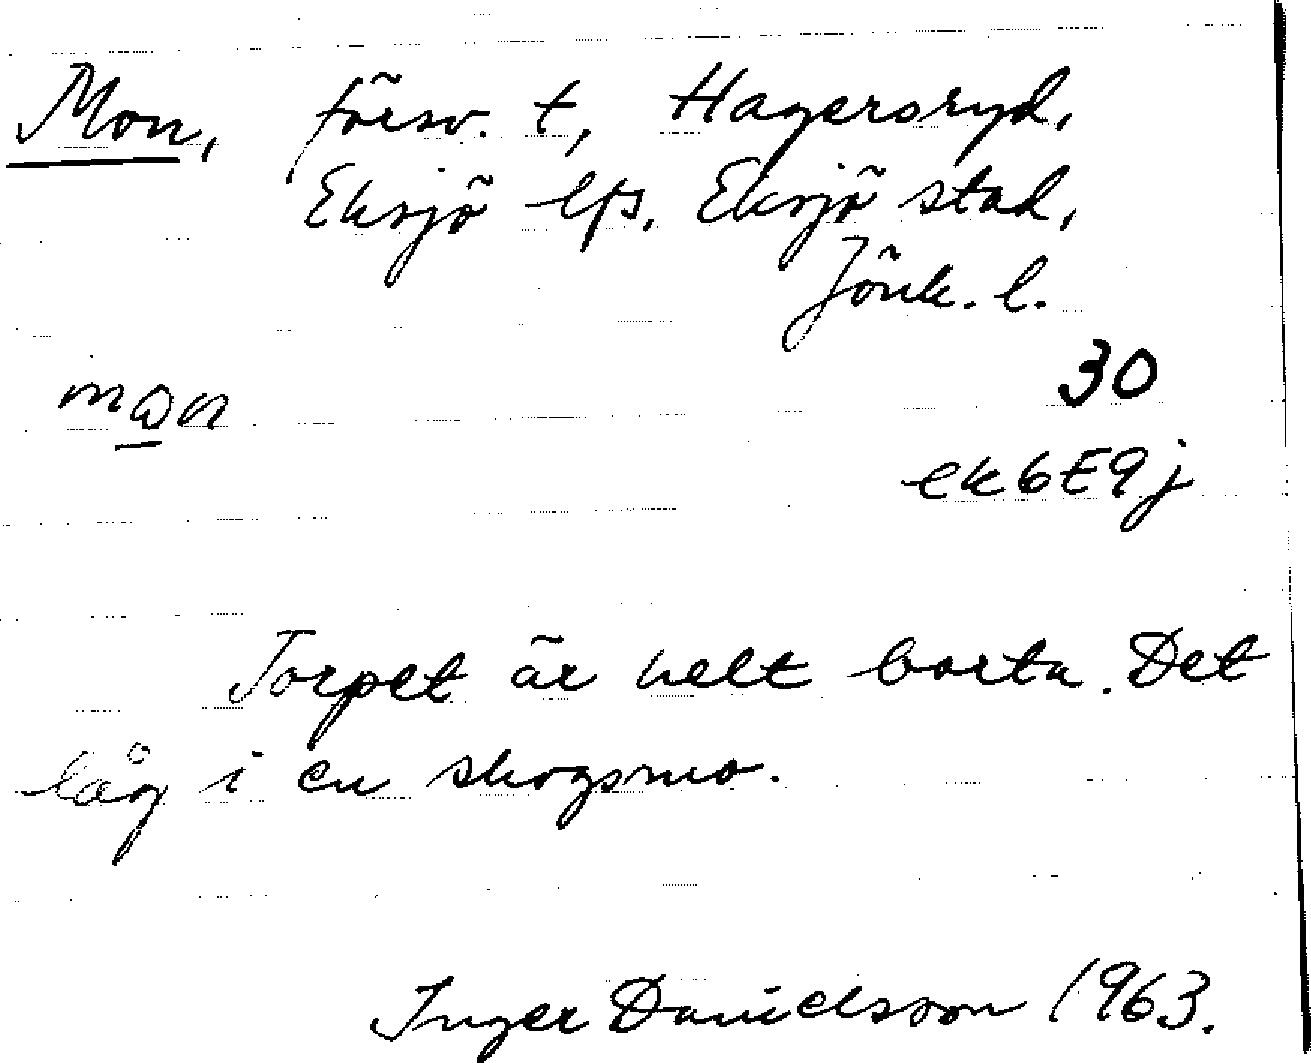 Mon, försv. t, Hagersryd,
Eksjö lfs. Eksjö stad,
Jönk. l.
30
mɷn
ek6E9j
Torpet är helt borta. Det
låg i en skogsmo.
Inger Danielsson 1963.